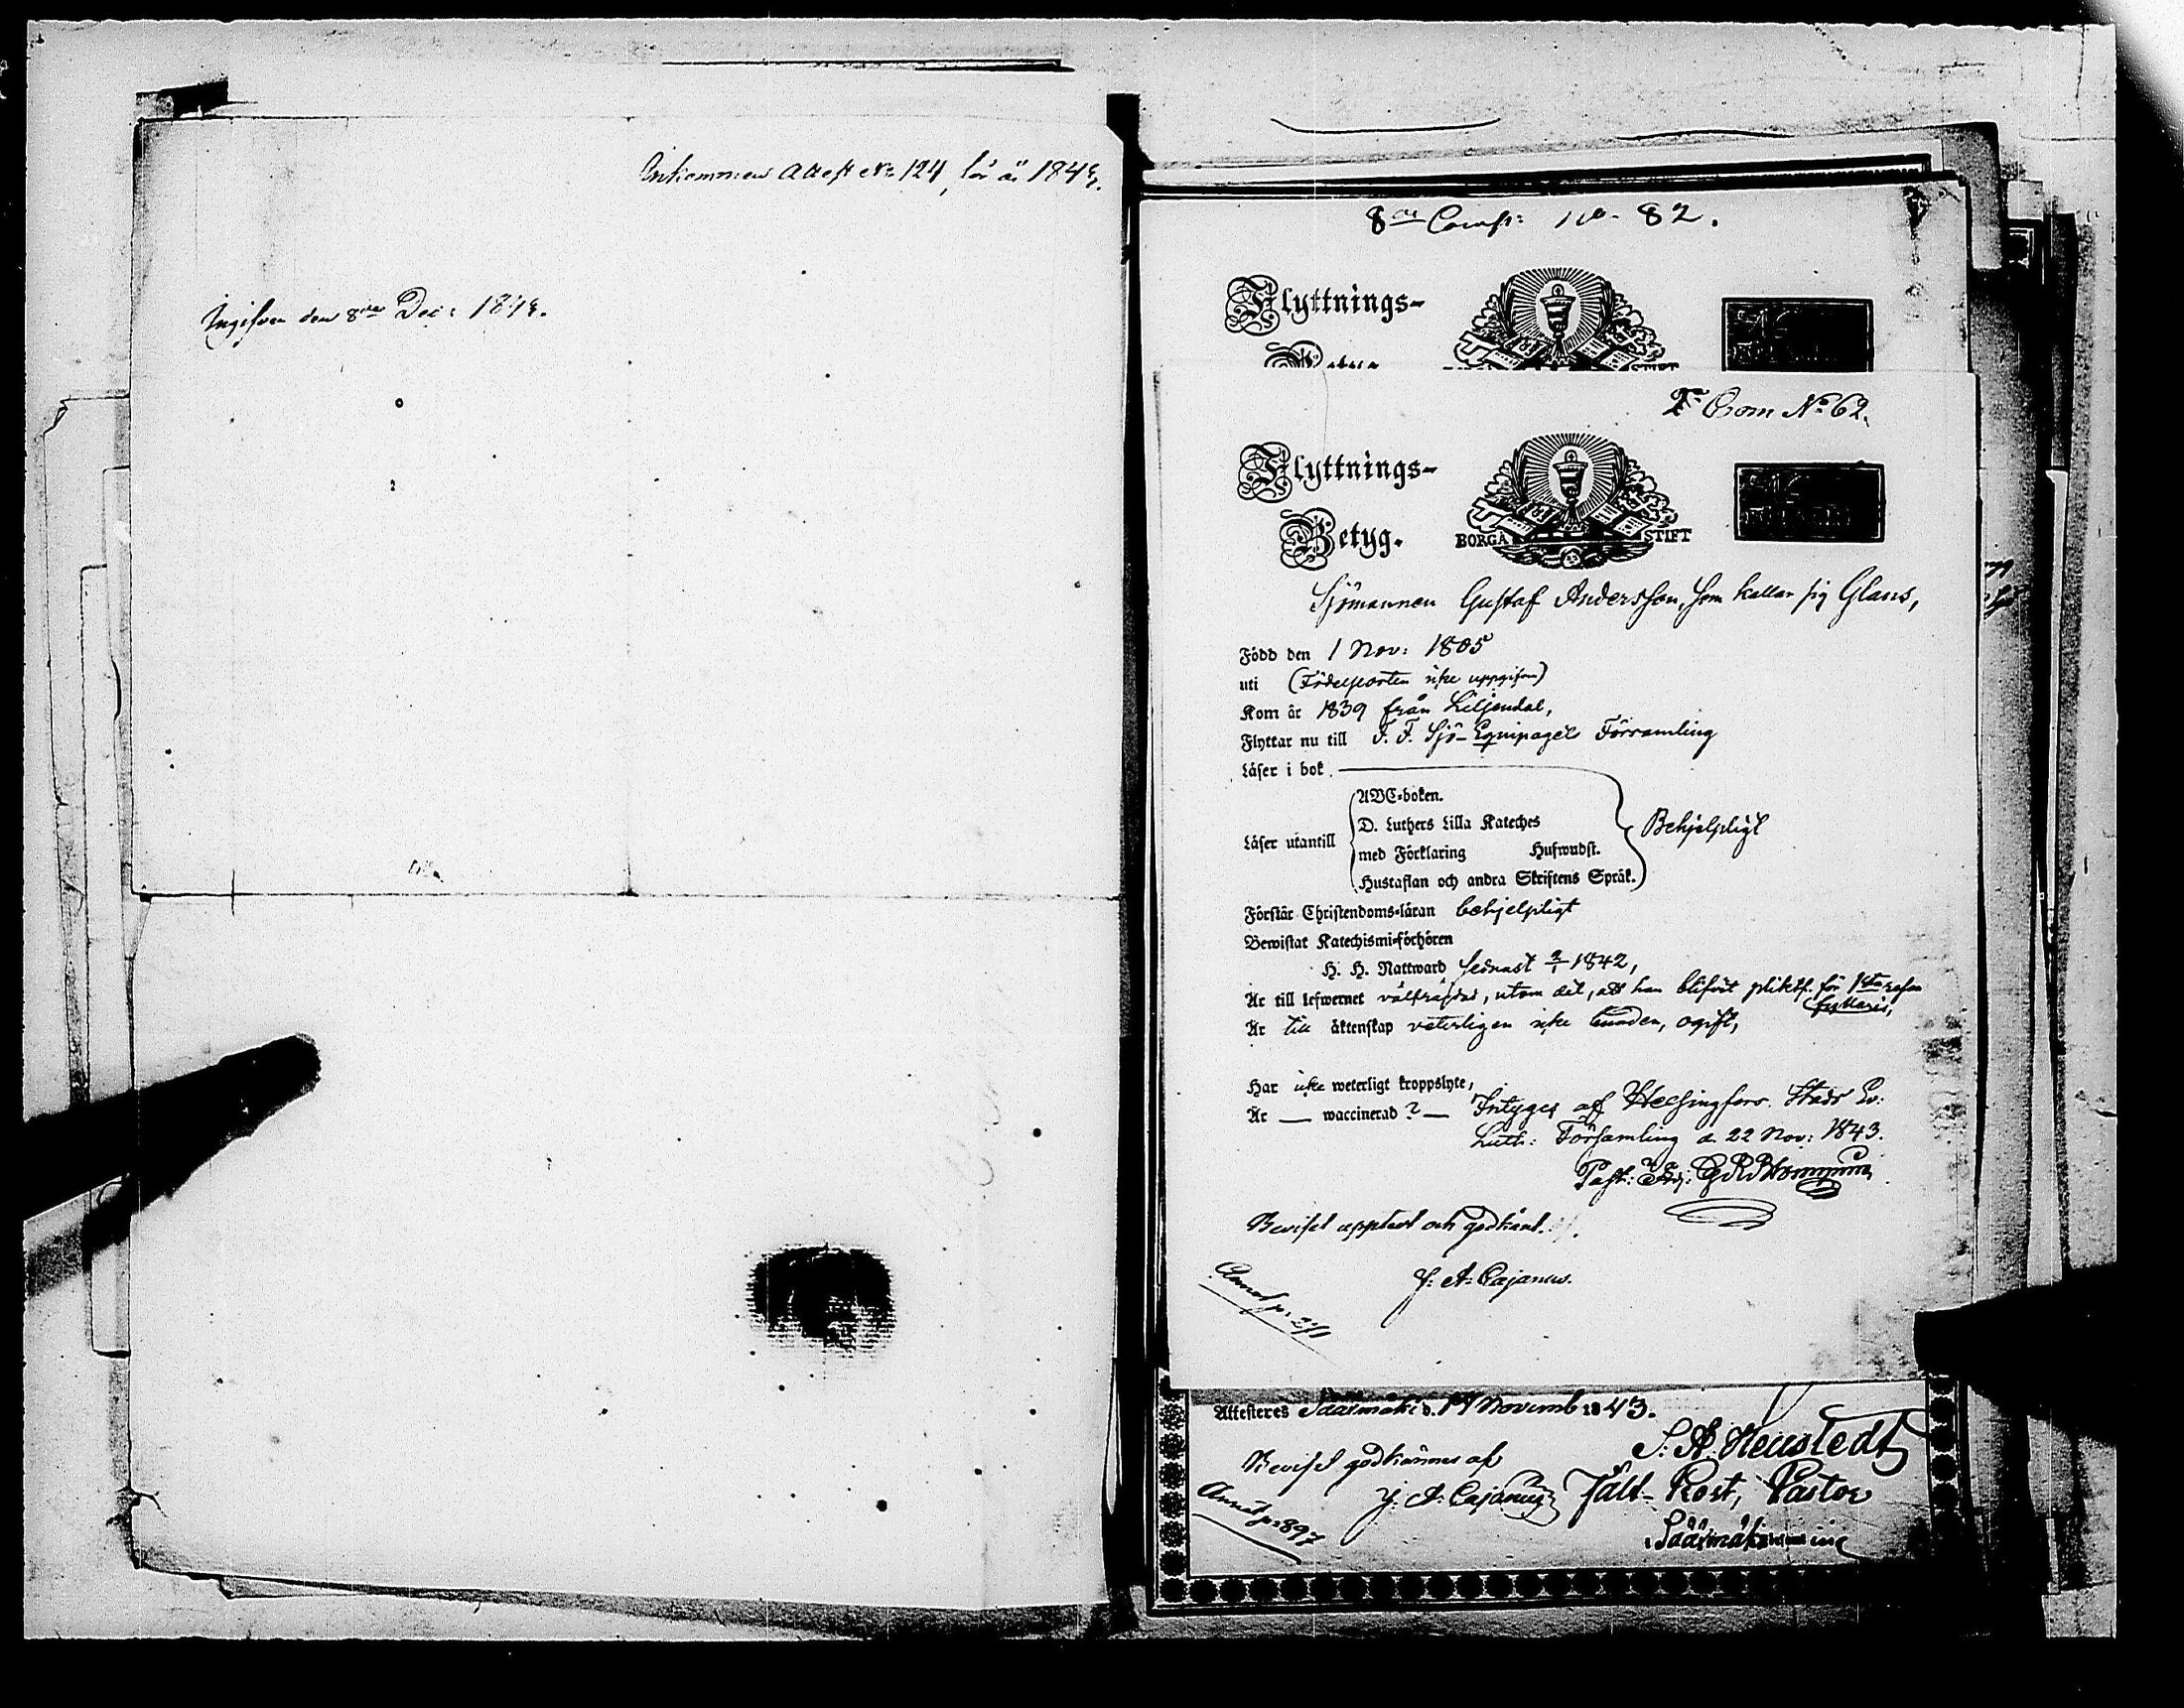 Inkommen Attest No 124, för år 1843.
Ingifven den 8de Dec: 1843.
8de Comp: No 82.
Flyttnings-
Com No 62.
Flyttnings-
Betyg.
BORGÅ STIFT
Sjömannen Gustaf Andersson, som kallar sig Glans,
Född den 1 Nov: 1805
uti (Födelseorten icke uppgifven)
Kom år 1839 från Liljendal,
Flyttar nu till F. F. Sjö-Equipagets Församling
Läser i bok
Läser utantill
ABC-boken.
D. Luthers Lilla Kateches
med Förklaring Hufwudst.
Hustaflan och andra Skriftens Språk.
Behjelpligt
Förstår Christendoms-läran behjelpligt
Bewistat Katechismi-förhören
H. H. Nattward sednast 2/1 1842,
Är till lefwernet välfräjdad, utom det, att han blifvit plikt. för 1sta resan
fylleri,
Är till äktenskap veterligen icke bunden, ogift,
Har icke weterligt kroppslyte,
Är — waccinerad ? — Intygas af Helsingfors Stads Ev:
Luth: Församling d. 22 Nov: 1843.
Past: Adj:
Beviset upptert och godkänt.
J: A: Cajanus.
Annot p: 271
Attesteres Sääsmäki d. 17 Novemb 1843.
S. A. Neustedt
Beviset godkännes af
J: A: Cajanus Fält-Prost, Pastor
Annot p: 897
i Sääsmäki